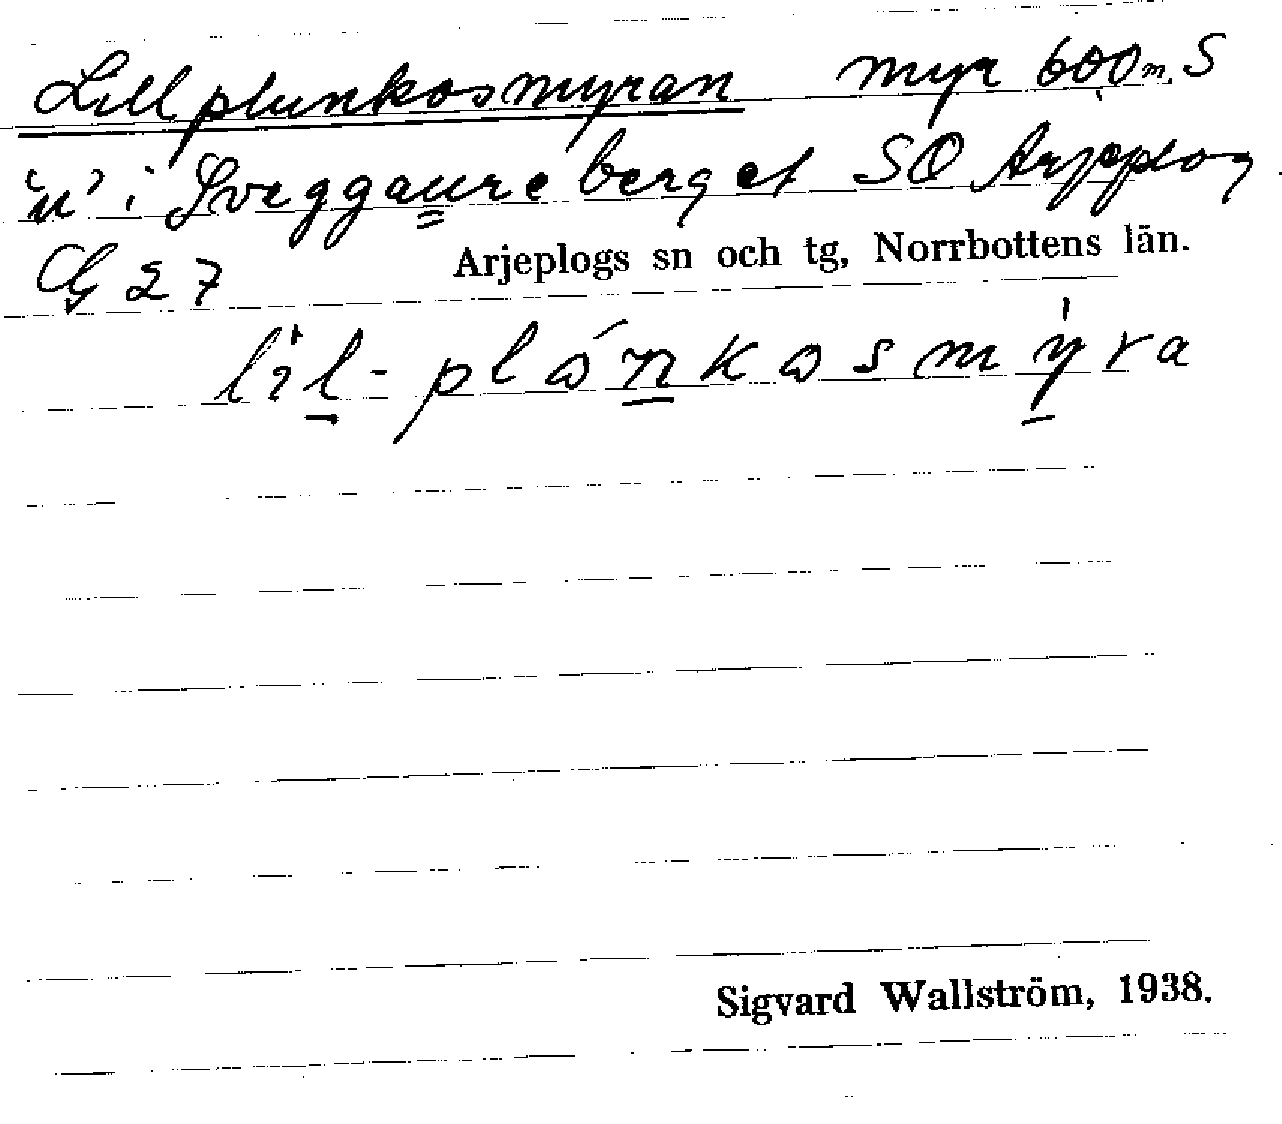 Lillplunkosmyran myr 600 m. S
"u" i Sveggaure berget SO Arjeplog
G 27 Arjeplogs sn och tg, Norrbottens län.
lil-plónkosmyra
Sigvard Wallström, 1938.